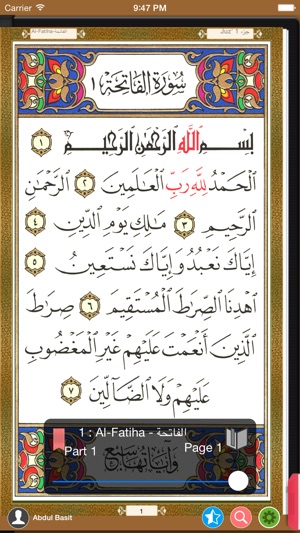 Carrier 9:47 PM
Al-Fatiha-الفاتحة Juz' 1 جزء
سُورَةُ الفَاتِحَةِ ١
بِسْمِ اللَّهِ الرَّحْمَٰنِ الرَّحِيمِ ١
الْحَمْدُ لِلَّهِ رَبِّ الْعَالَمِينَ ٢ الرَّحْمَٰنِ
الرَّحِيمِ ٣ مَالِكِ يَوْمِ الدِّينِ ٤
إِيَّاكَ نَعْبُدُ وَإِيَّاكَ نَسْتَعِينُ ٥
اهْدِنَا الصِّرَاطَ الْمُسْتَقِيمَ ٦ صِرَاطَ
الَّذِينَ أَنْعَمْتَ عَلَيْهِمْ غَيْرِ الْمَغْضُوبِ
عَلَيْهِمْ وَلَا الضَّالِّينَ ٧
1 : Al-Fatiha - الفاتحة
Part 1 Page 1
وآياتها سبع
Abdul Basit 1